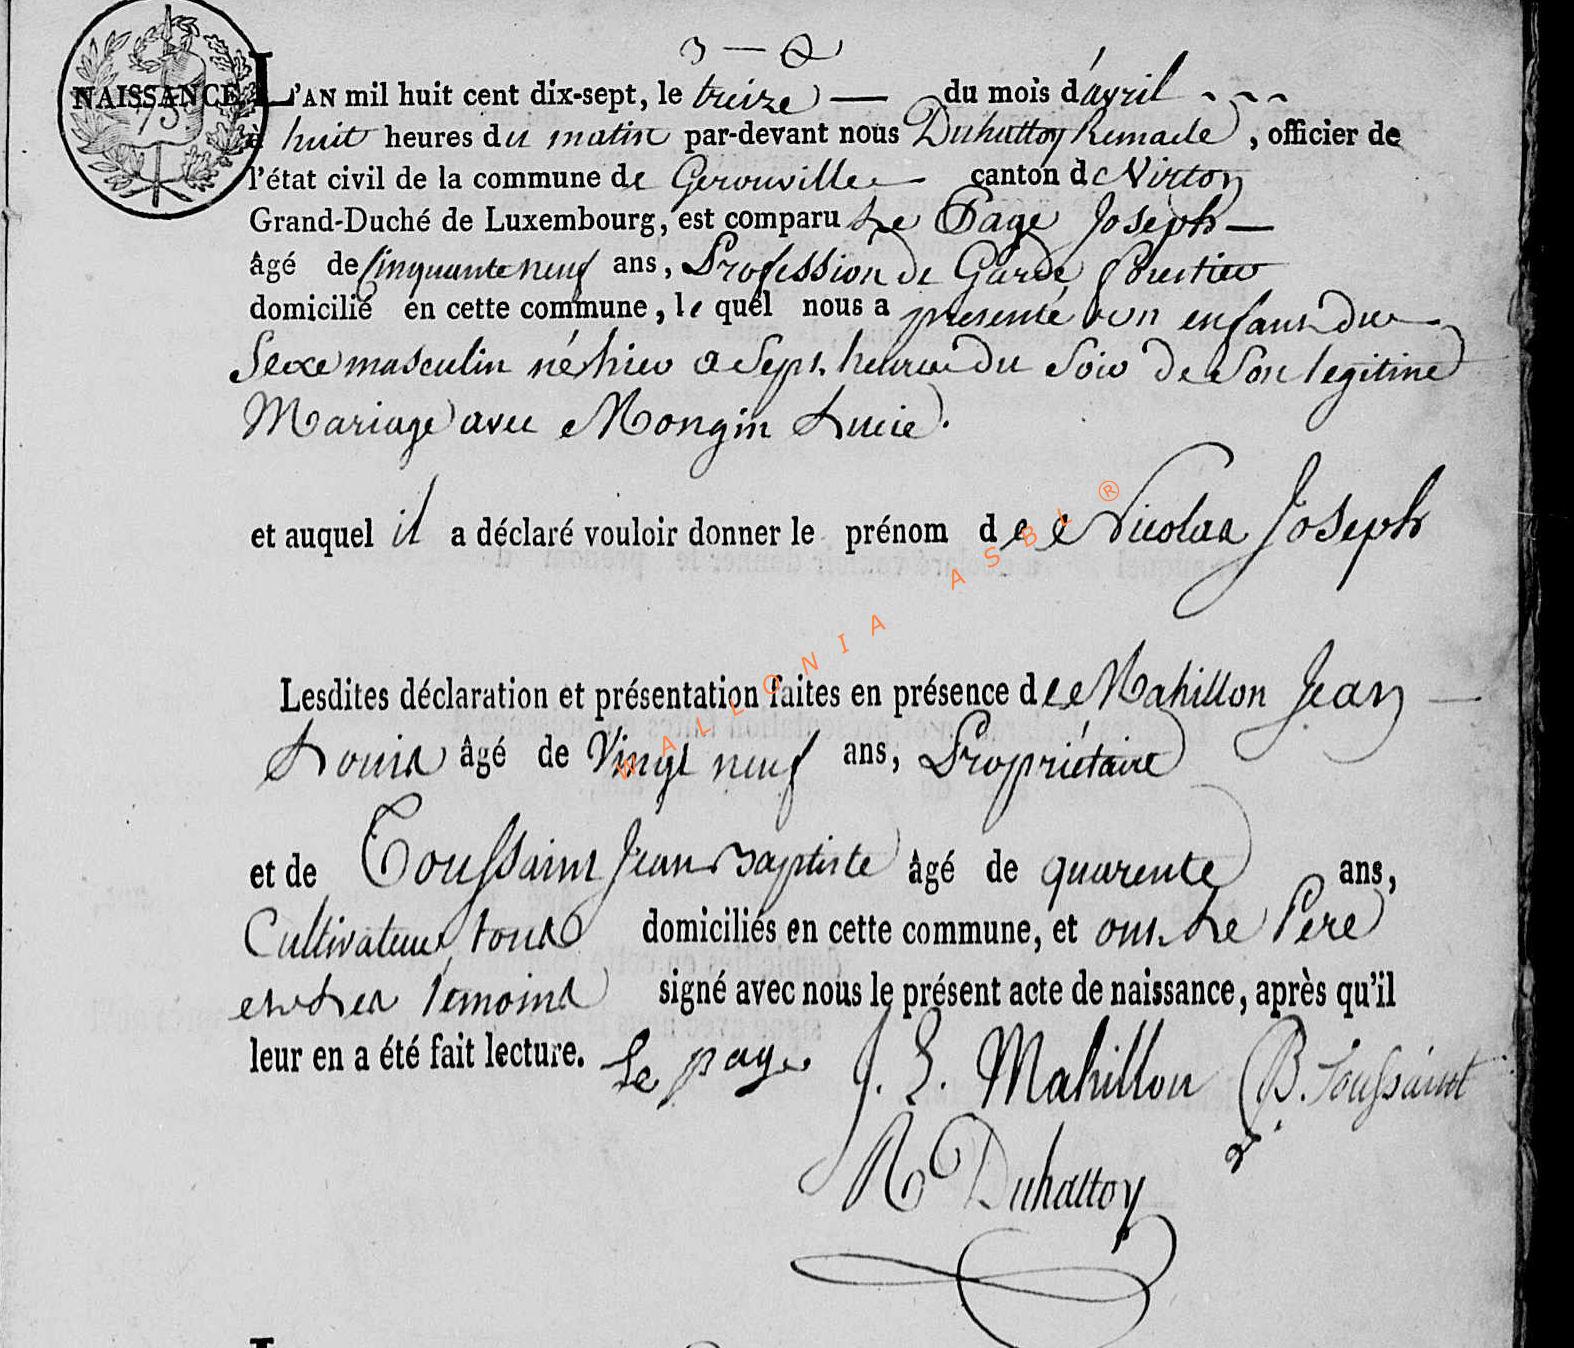 3 —
NAISSANCE
75
L'AN mil huit cent dix-sept, le treize — du mois d'avril ~ ~ ~
à huit heures du matin par-devant nous Duhattoy Remacle, officier de
l'état civil de la commune de Gerouville — canton de Virton
Grand-Duché de Luxembourg, est comparu Le Page Joseph —
âgé de Cinquante neuf ans, Profession de Garde forestier
domicilié en cette commune, le quel nous a presenté un enfant du
Sexe masculin né hier a Sept heures du Soir de Son legitime
Mariage avec Mongin Lucie.
et auquel il a déclaré vouloir donner le prénom de Nicolas Joseph
Lesdites déclaration et présentation faites en présence de Mahillon Jean —
Louis âgé de Vingt neuf ans, Propriétaire
et de Toussaint Jean Baptiste âgé de quarente ans,
Cultivateur, tous domiciliés en cette commune, et ont Le Pere
et Les temoins signé avec nous le présent acte de naissance, après qu'il
leur en a été fait lecture. Le page J. L. Mahillon B. Toussaint
R Duhattoy
WALLONIA ASBL ®